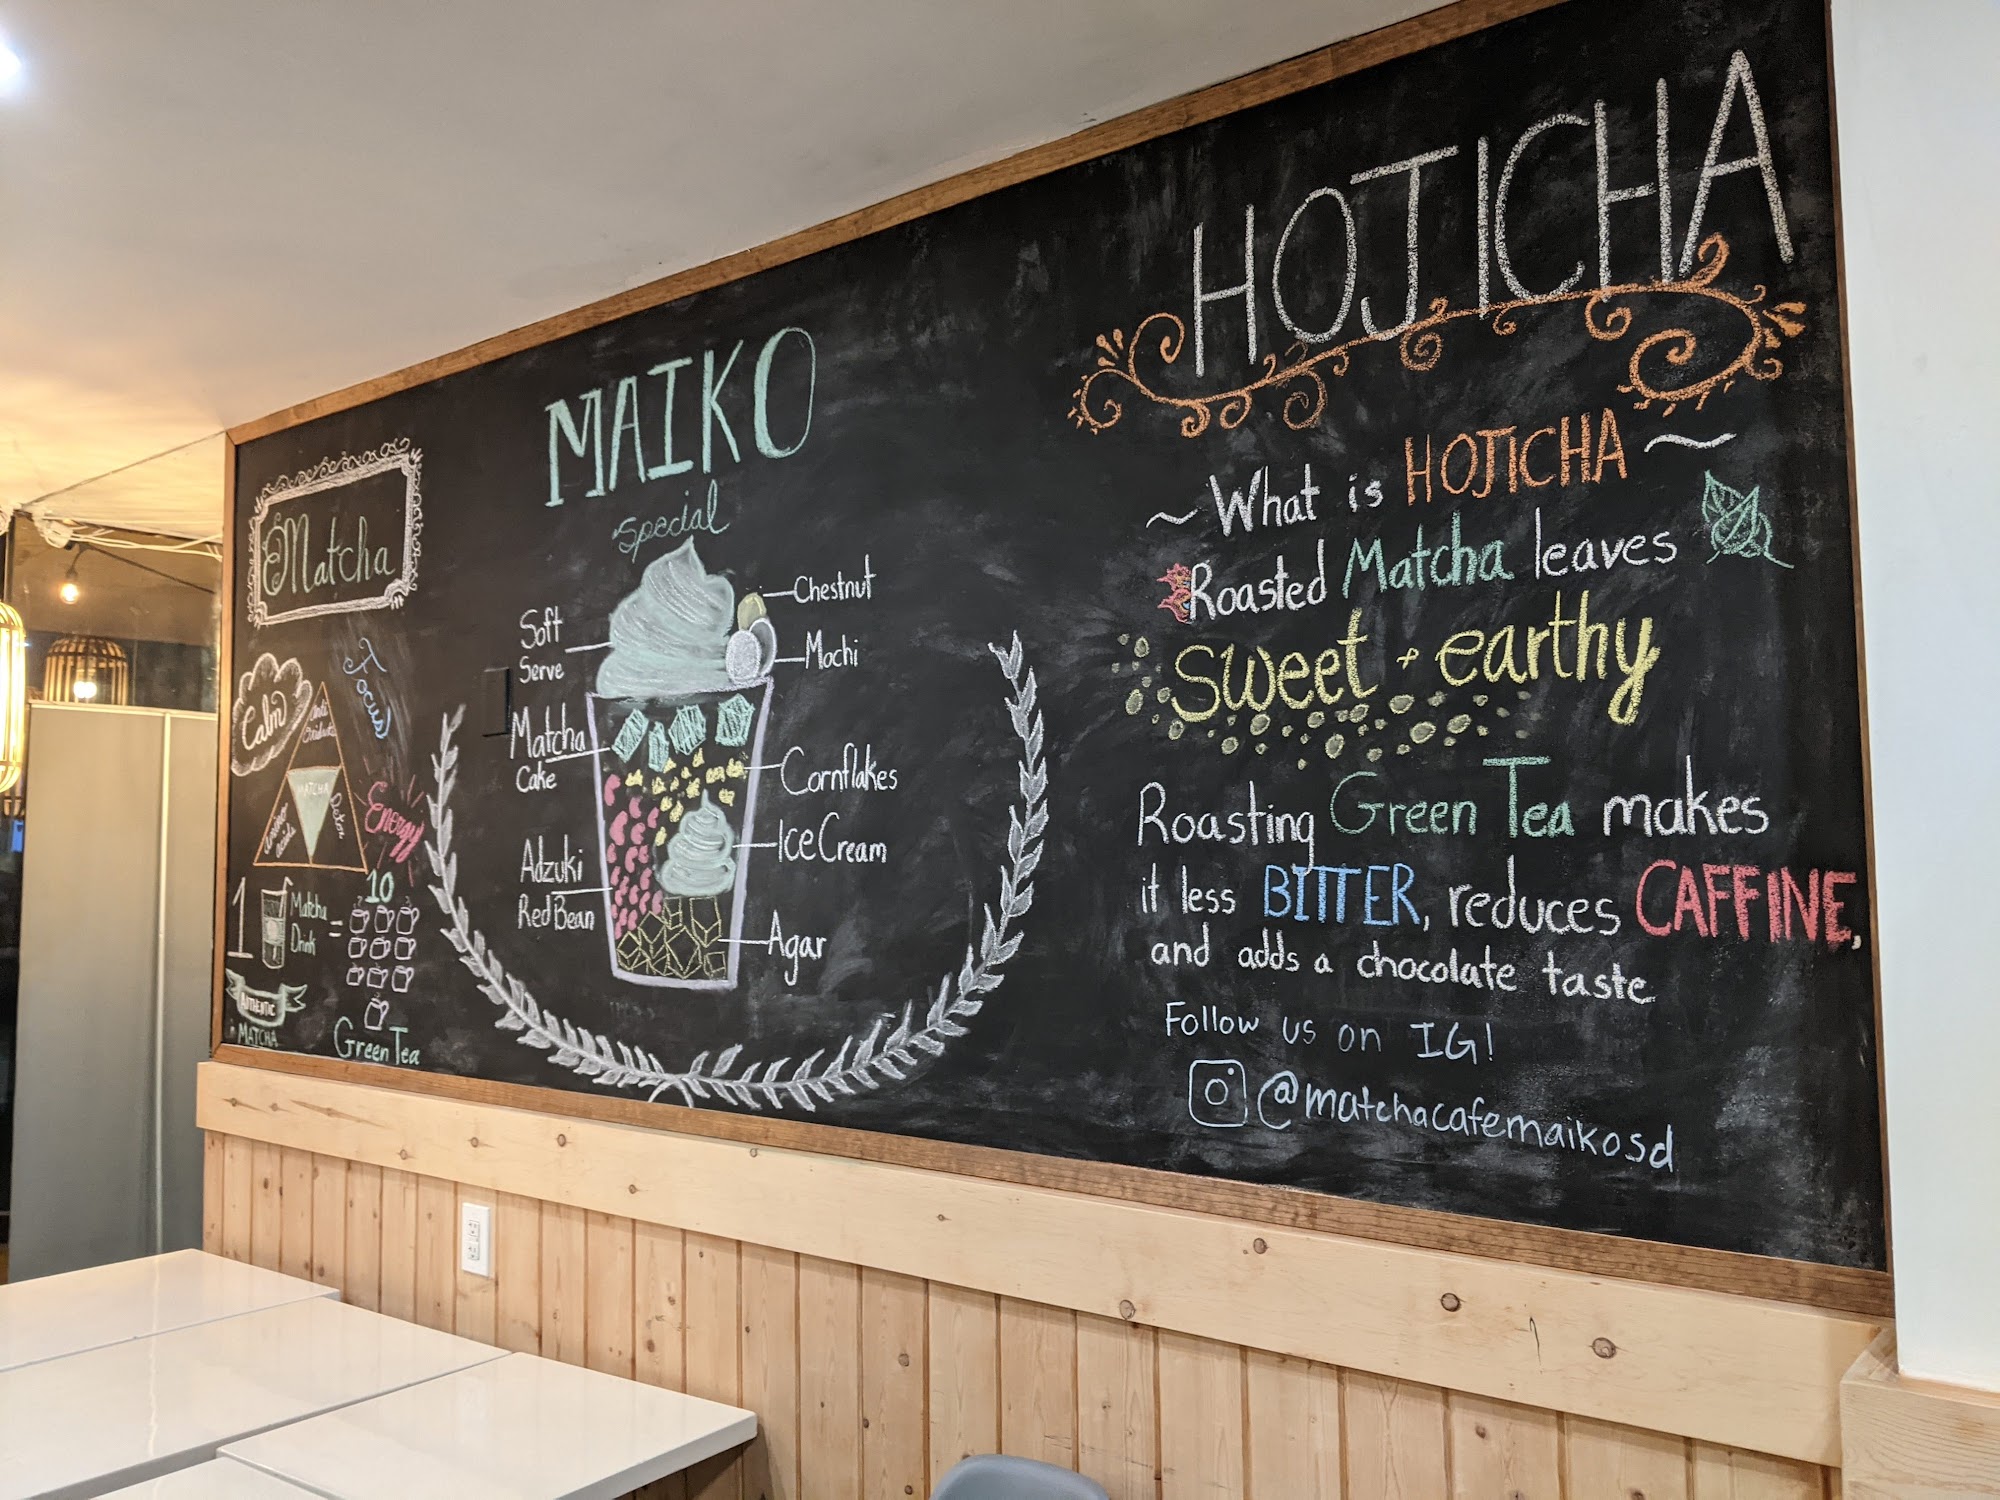 Matcha
Calm
Focus
Anti
Oxidants
MATCHA
Amino
acids
Detox
Energy
1
Matcha
Drink
=
10
Green Tea
AUTHENTIC
MATCHA
MAIKO
Special
Soft
Serve
Matcha
Cake
Adzuki
Red Bean
Chestnut
Mochi
Cornflakes
Ice Cream
Agar
HOJICHA
~ What is HOJICHA ~
Roasted Matcha leaves
sweet + earthy
Roasting Green Tea makes
it less BITTER, reduces CAFFINE,
and adds a chocolate taste
Follow us on IG!
@matchacafemaikosd